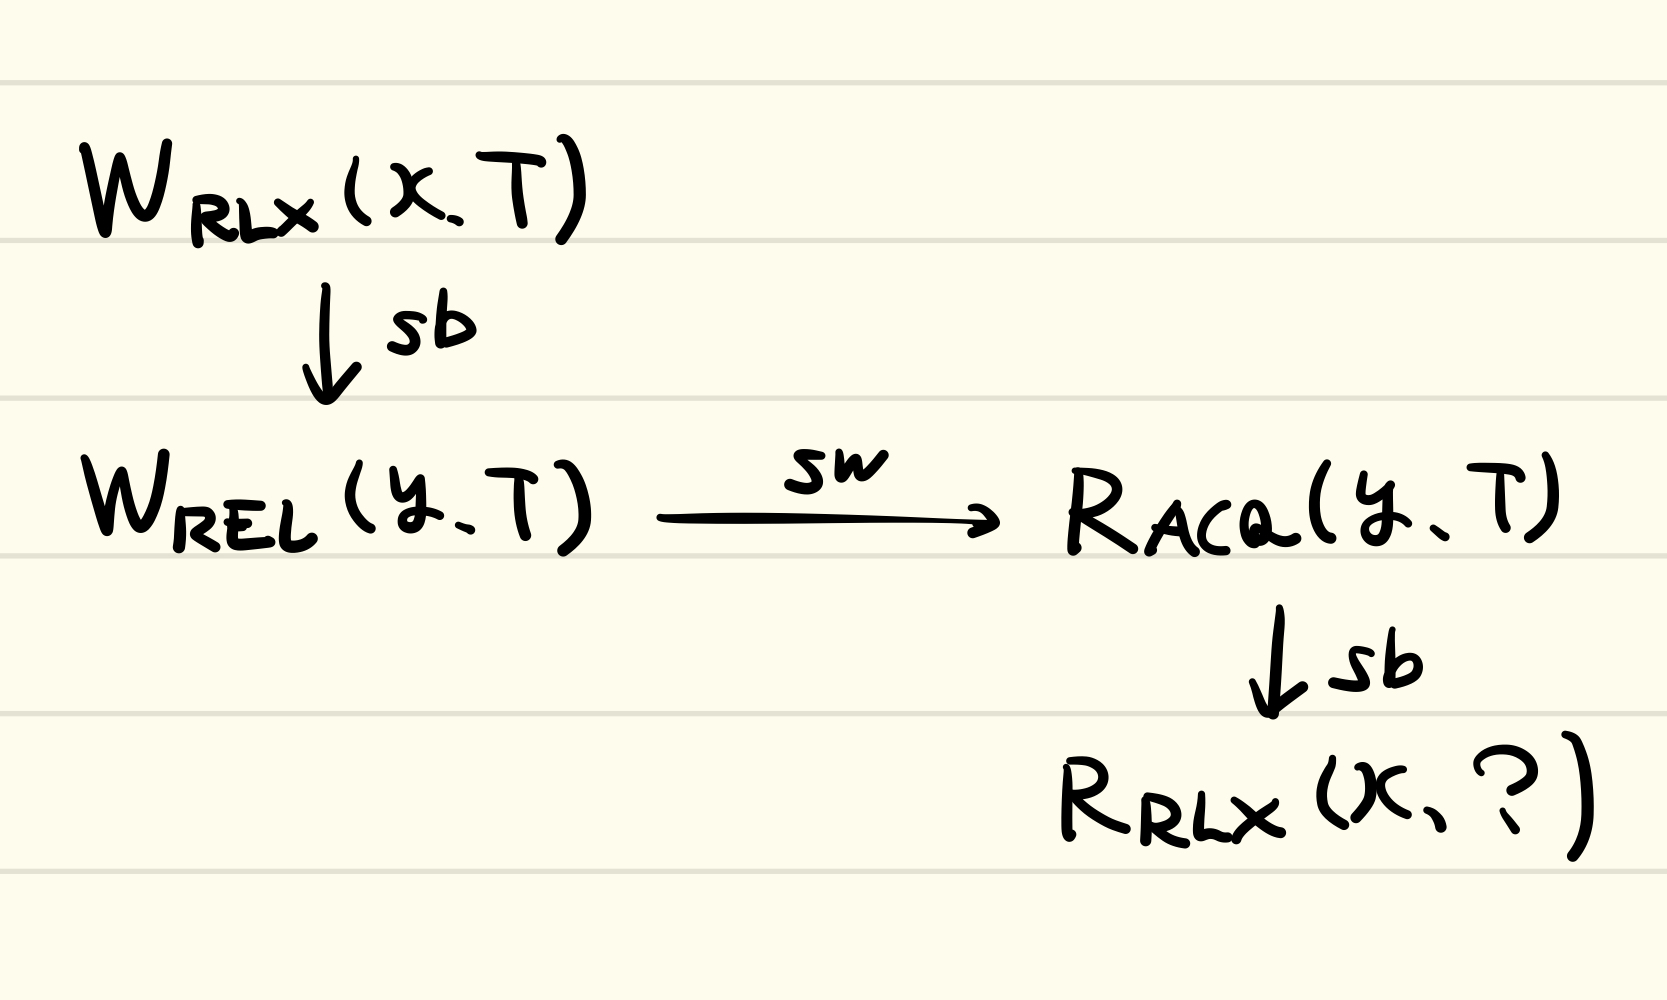 W RLX (x, T)
↓ sb
W REL (y, T) sw → R ACQ (y, T)
↓ sb
R RLX (x, ?)